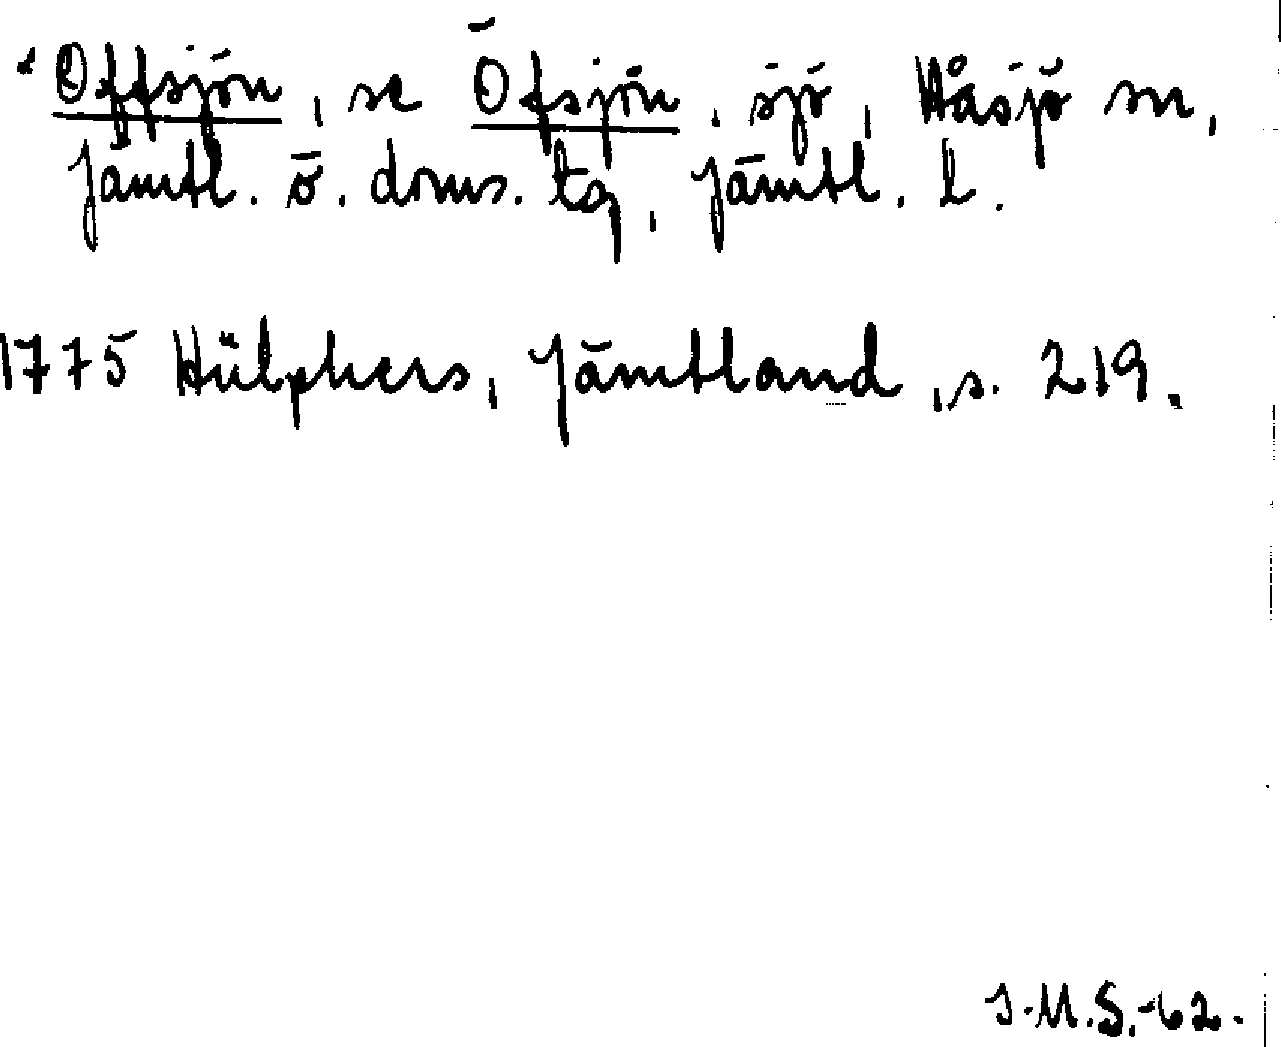 Offsjön, se Öfsjön, sjö, Håsjö sn,
Jämtl. ö. doms. tg, Jämtl. l.
1775 Hülphers, Jämtland, s. 219.
J.M.S.-62.